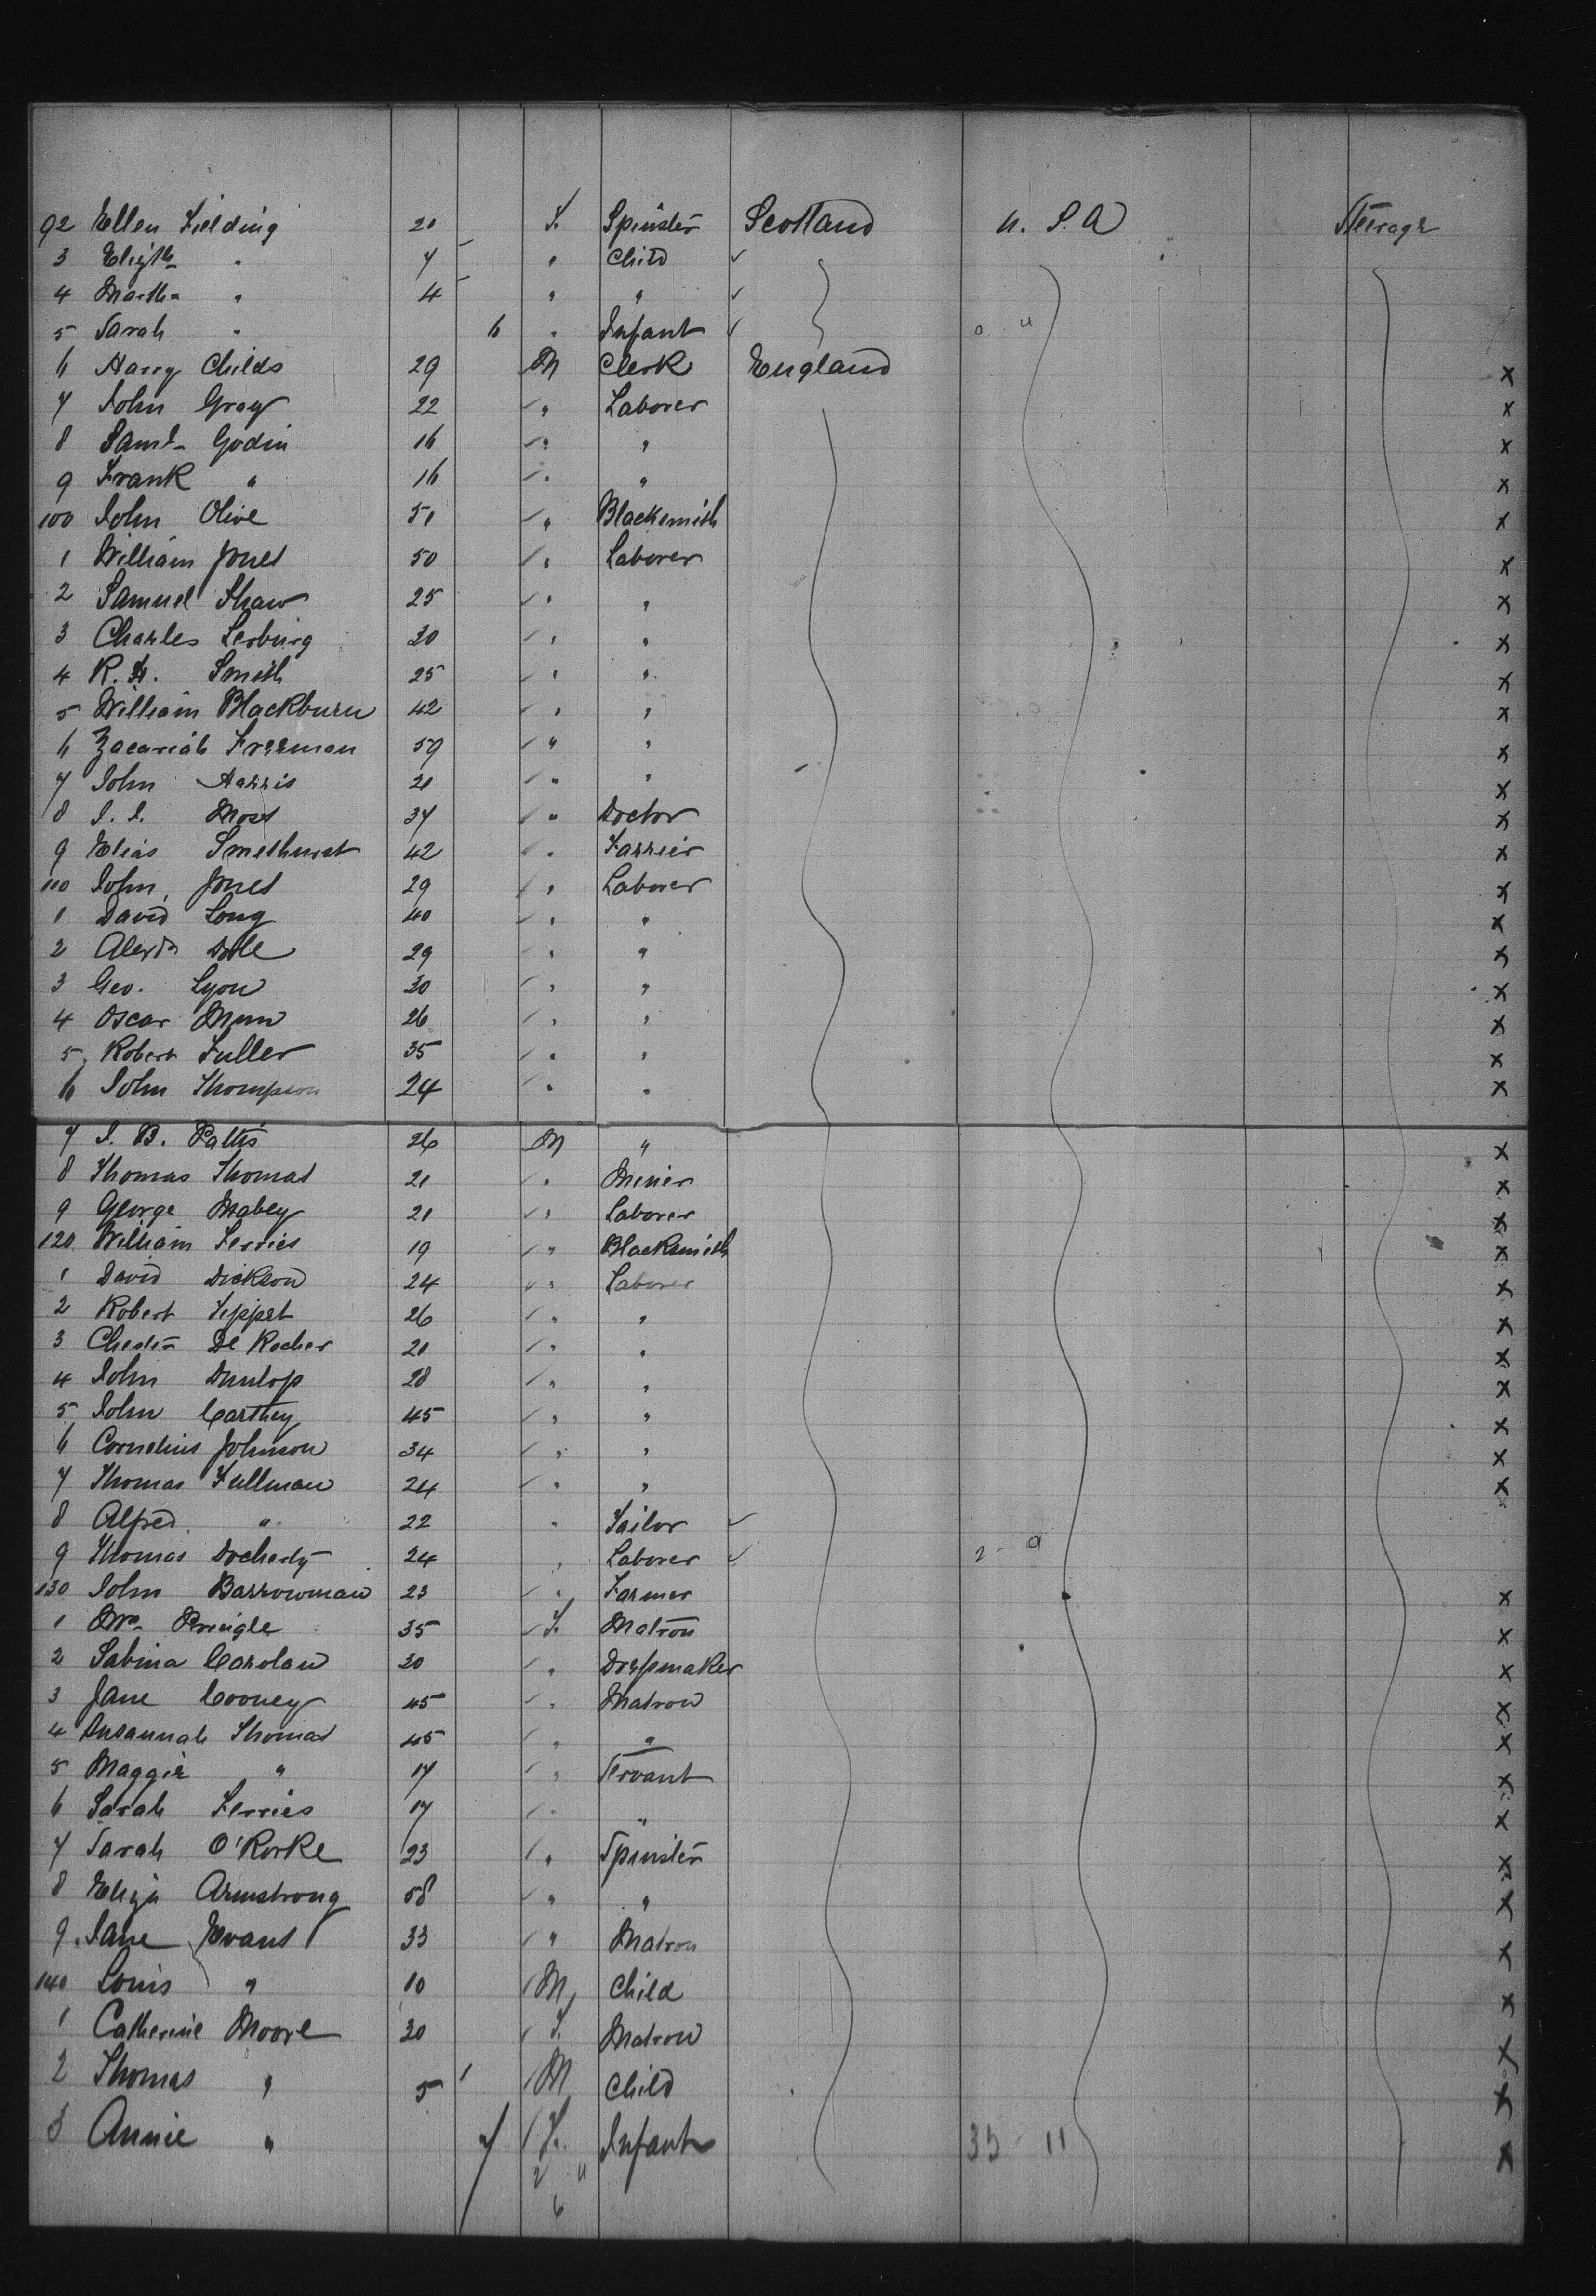 92 Ellen Fielding 20 F. Spinster Scotland U. S. A Steerage
3 Elizth " 7 " Child ✓
4 Martha " 4 " " ✓
5 Sarah " 6 " Infant ✓ 0 4
6 Harry Childs 29 M Clerk England x
7 John Gray 22 " Laborer x
8 Saml Godin 16 " " x
9 Frank " 16 " " x
100 John Olive 51 " Blacksmith x
1 William Jones 50 " Laborer x
2 Samuel Shaw 25 " " x
3 Charles 30 " " x
4 R. H. Smith 25 " " x
5 William Blackburn 42 " " x
6 Zacariah Freeman 59 " " x
7 John Harris 21 " " x
8 J. J. Moss 37 " Doctor x
9 Elias Smethurst 42 " Farrier x
110 John Jones 29 " Laborer x
1 David Long 40 " " x
2 Alexdr Dole 29 " " x
3 Geo. Lyon 30 " " x
4 Oscar Munn 26 " " x
5 Robert Fuller 35 " " x
6 John Thompson 24 " " x
7 J. B. Pattis 26 M " x
8 Thomas Thomas 21 " Miner x
9 George Mabey 21 " Laborer x
120 William Ferries 19 " Blacksmith x
1 David Dickson 24 " Laborer x
2 Robert Teppet 26 " " x
3 Chester De Rocher 20 " " x
4 John Dunlop 28 " " x
5 John Carthey 45 " " x
6 Cornelius Johnson 34 " " x
7 Thomas Fullman 24 " " x
8 Alfred " 22 " Sailor ✓
9 Thomas Docherty 24 " Laborer ✓ 2 - 0
130 John Barrowman 23 " Farmer x
1 Mrs Pringle 35 F. Matron x
2 Sabina Carolan 30 " Dressmaker x
3 Jane Cooney 45 " Matron x
4 Susannah Thomas 45 " " x
5 Maggie " 17 " Servant x
6 Sarah Ferries 17 " " x
7 Sarah O'Rorke 23 " Spinster x
8 Eliza Armstrong 58 " " x
9 Jane Evans 33 " Matron x
140 Louis " 10 M Child x
1 Catherine Moore 30 F. Matron x
2 Thomas " 5 M Child x
3 Annie " 7 F. Infant 35 11 x
2 4
6